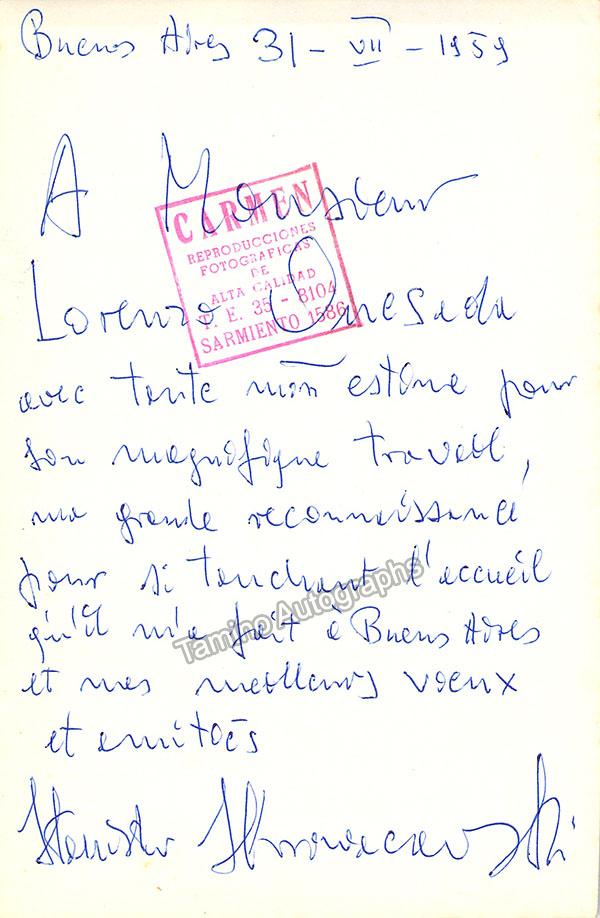 Buenos Aires 31 - VII - 1959
A Monsieur
CARMEN
REPRODUCCIONES
FOTOGRAFICAS
DE
ALTA CALIDAD
T. E. 35 - 8104
SARMIENTO 1586
Lorenzo Quesada
avec toute mon estime pour
son magnifique travail,
ma grande reconnaissance
pour si touchant l'accueil
qu'il m'a fait à Buenos Aires
Tamino Autographs
et mes meilleurs vœux
et amitiés
Stanisław Skrowaczewski